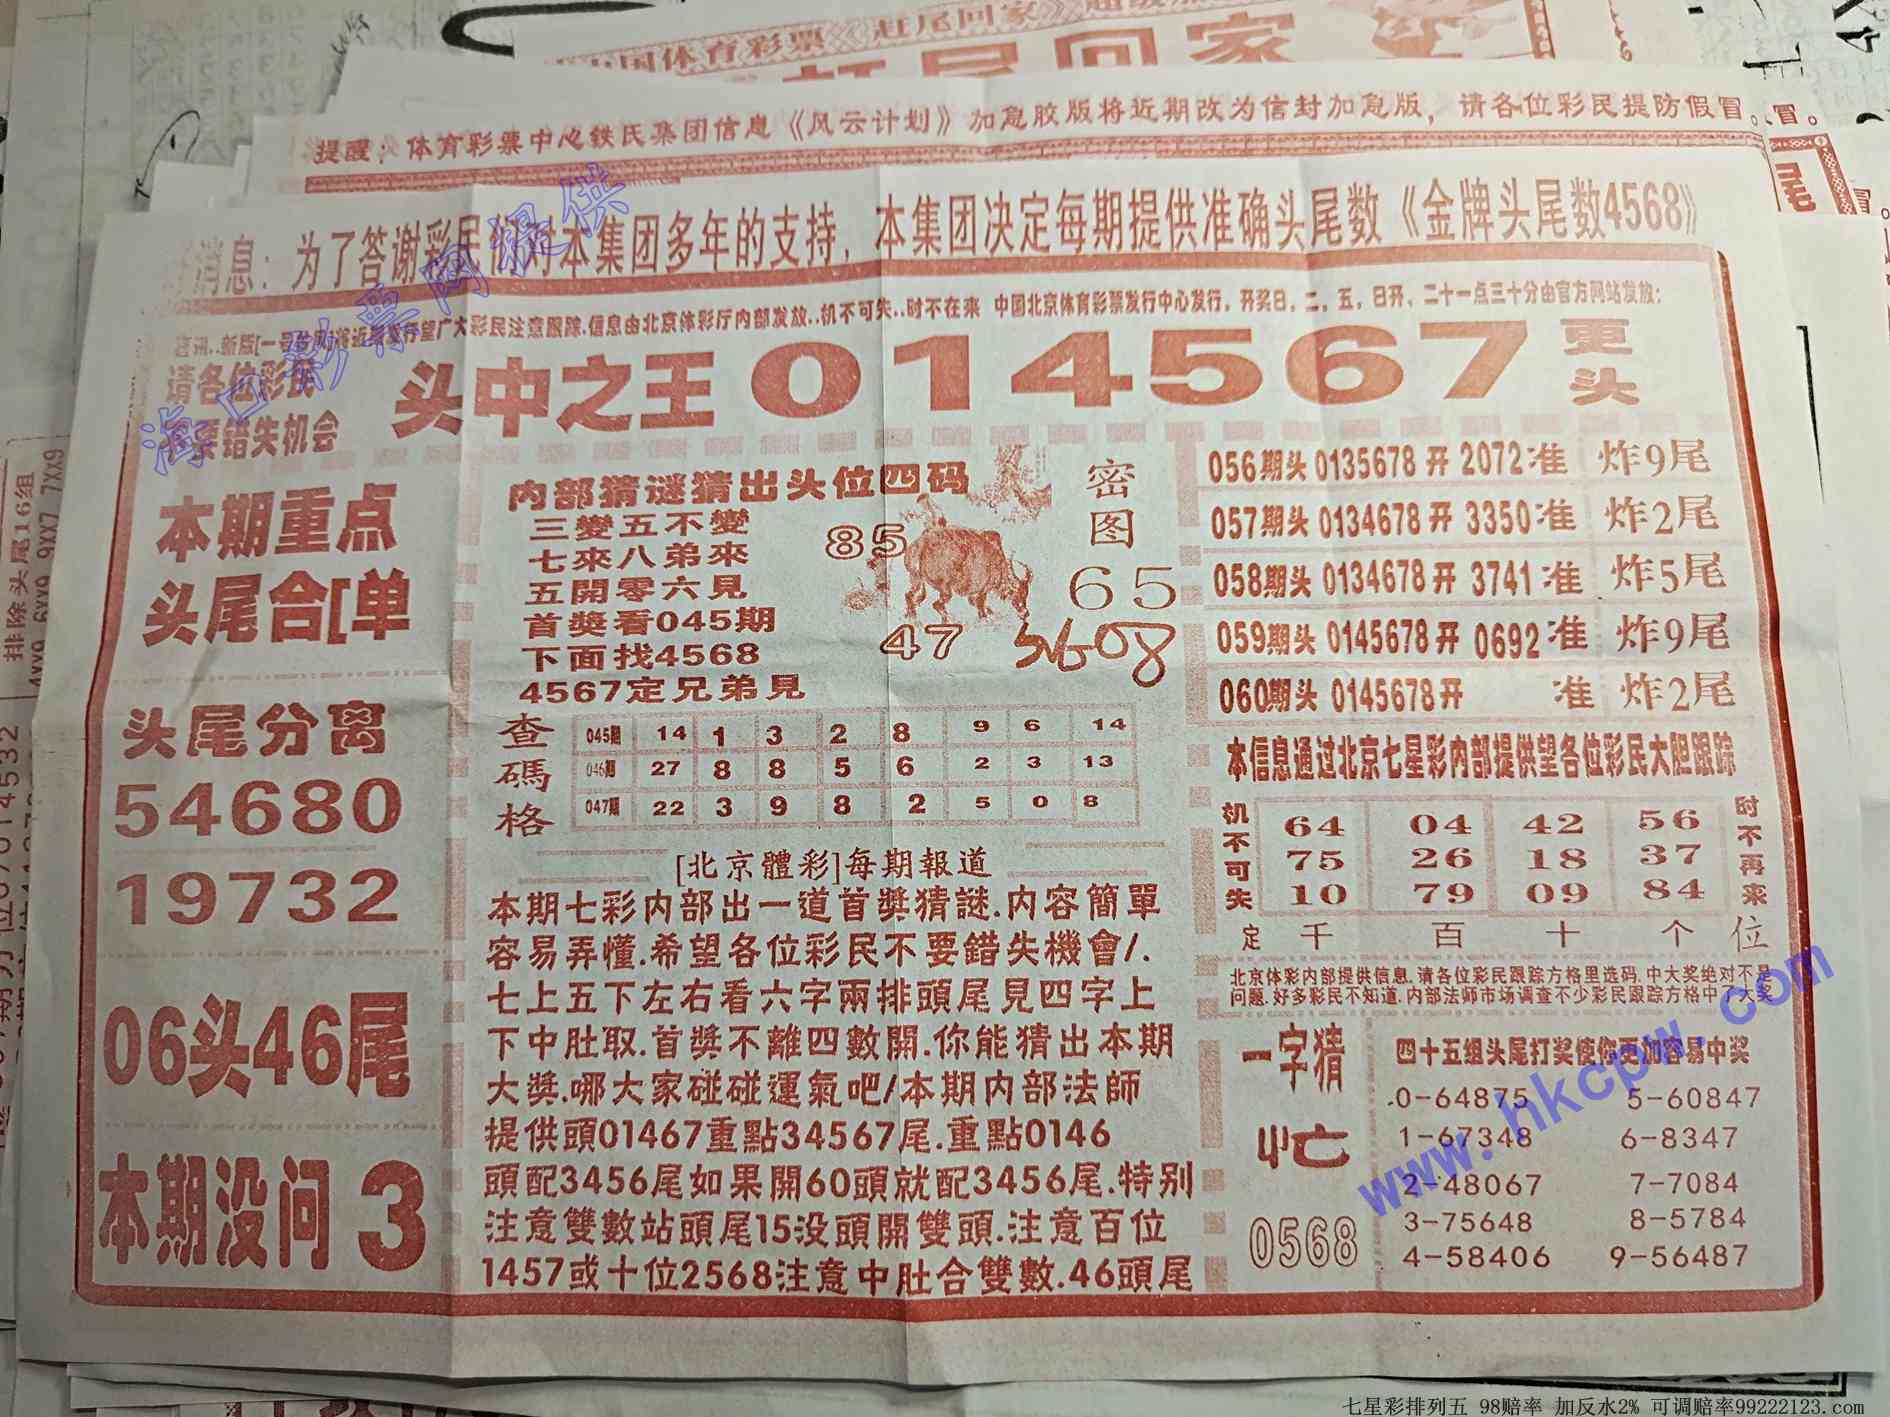 中国体育彩票《赶尾回家》
打尾回家
提醒：体育彩票中心铁民集团信息《风云计划》加急胶版将近期改为信封加急版，请各位彩民提防假冒。
消息：为了答谢彩民们对本集团多年的支持，本集团决定每期提供准确头尾数《金牌头尾数4568》
新版[一号台风]将近期发行望广大彩民注意跟踪.信息由北京体彩厅内部发放..机不可失..时不在来 中国北京体育彩票发行中心发行，开奖日，二，五，日开，二十一点三十分由官方网站发放；
请各位彩民
不要错失机会
头中之王 014567 更头
本期重点
头尾合[单
头尾分离
54680
19732
06头46尾
本期没问 3
内部猜谜猜出头位四码
三變五不變
七來八弟來
五開零六見
首獎看045期
下面找4568
4567定兄弟見
85
47
密图
65
3608
查碼格
045期 14 1 3 2 8 9 6 14
046期 27 8 8 5 6 2 3 13
047期 22 3 9 8 2 5 0 8
[北京體彩]每期報道
本期七彩内部出一道首獎猜謎.内容簡單
容易弄懂.希望各位彩民不要錯失機會/.
七上五下左右看六字兩排頭尾見四字上
下中肚取.首獎不離四數開.你能猜出本期
大獎.哪大家碰碰運氣吧/本期内部法師
提供頭01467重點34567尾.重點0146
頭配3456尾如果開60頭就配3456尾.特别
注意雙數站頭尾15没頭開雙頭.注意百位
1457或十位2568注意中肚合雙數.46頭尾
056期头 0135678 开 2072 准 炸9尾
057期头 0134678 开 3350 准 炸2尾
058期头 0134678 开 3741 准 炸5尾
059期头 0145678 开 0692 准 炸9尾
060期头 0145678 开 准 炸2尾
本信息通过北京七星彩内部提供望各位彩民大胆跟踪
机不可失
64 04 42 56
75 26 18 37
10 79 09 84
时不再来
定 千 百 十 个 位
北京体彩内部提供信息.请各位彩民跟踪方格里选码.中大奖绝对不是
问题.好多彩民不知道.内部法师市场调查不少彩民跟踪方格中了大奖
一字猜
忙
0568
四十五组头尾打奖使你更加容易中奖
0-64875 5-60847
1-67348 6-8347
2-48067 7-7084
3-75648 8-5784
4-58406 9-56487
排除头尾16组
4xx9 6xx9 9xx7 7xx9
海口彩票网提供
www.hkcpw.com
七星彩排列五 98赔率 加反水2% 可调赔率99222123.com